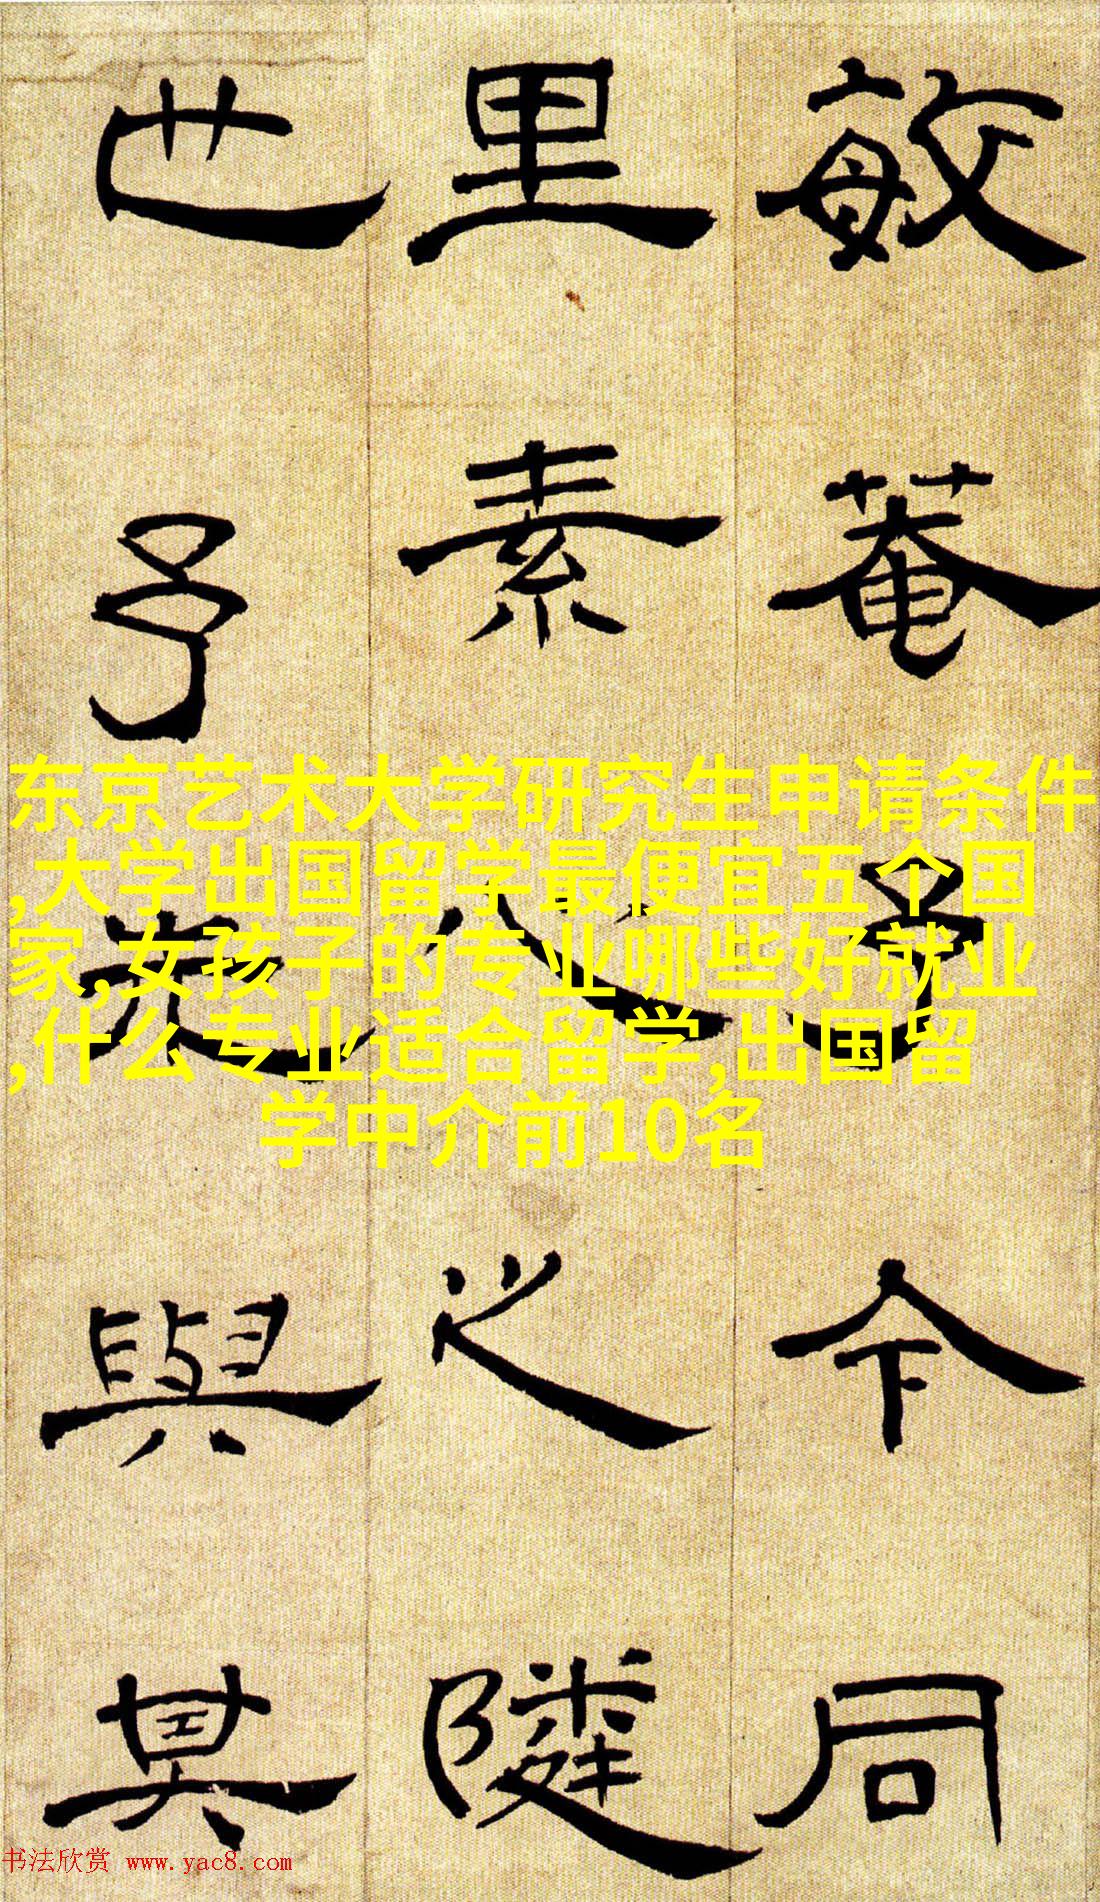 敏菴今同
里素之
世予與其
东京艺术大学研究生申请条件
,大学出国留学最便宜五个国
家,女孩子的专业哪些好就业
,什么专业适合留学,出国留
学中介前10名
书法欣赏 www.yac8.com